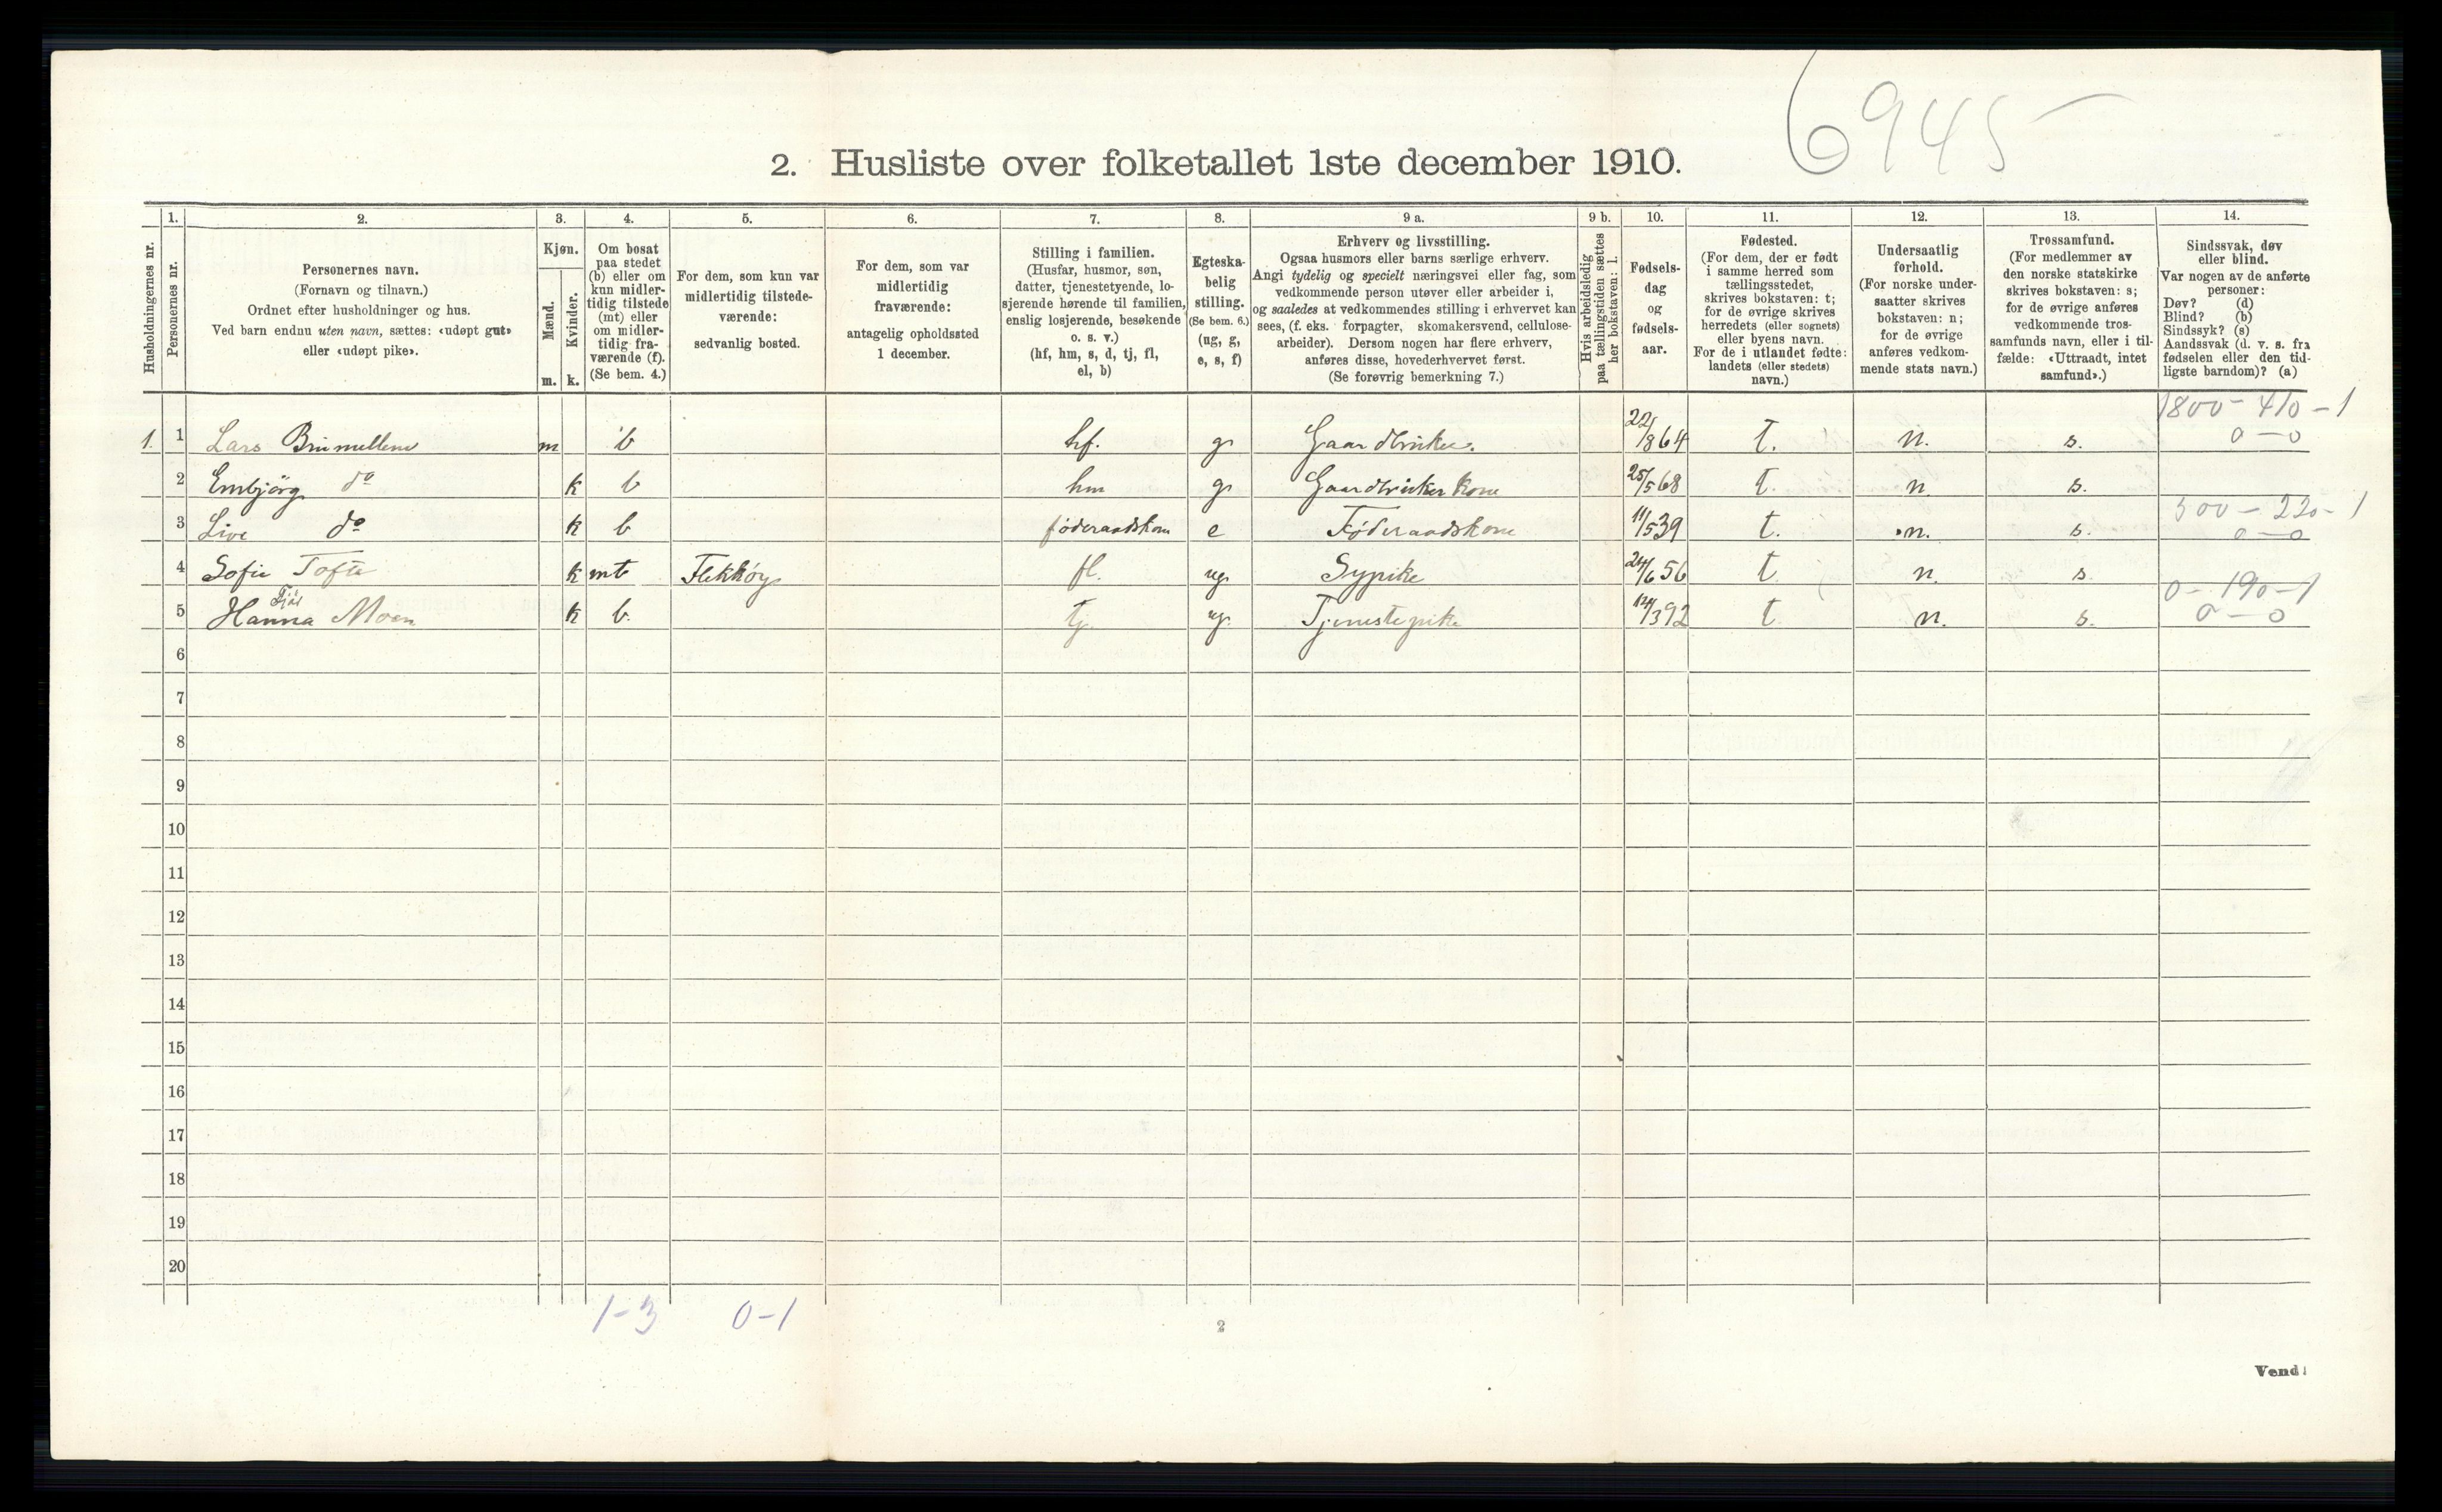 6945
2. Husliste over folketallet 1ste december 1910.
Husholdningernes nr.
1.
Personernes nr.
2.
Personernes navn.
(Fornavn og tilnavn.)
Ordnet efter husholdninger og hus.
Ved barn endnu uten navn, sættes: «udøpt gut»
eller «udøpt pike».
3.
Kjøn.
Mænd.
Kvinder.
m. k.
4.
Om bosat
paa stedet
(b) eller om
kun midler-
tidig tilstede
(mt) eller
om midler-
tidig fra-
værende (f).
(Se bem. 4.)
5.
For dem, som kun var
midlertidig tilstede-
værende:
sedvanlig bosted.
6.
For dem, som var
midlertidig
fraværende:
antagelig opholdssted
1 december.
7.
Stilling i familien.
(Husfar, husmor, søn,
datter, tjenestetyende, lo-
sjerende hørende til familien,
enslig losjerende, besøkende
o. s. v.)
(hf, hm, s, d, tj, fl,
el, b)
8.
Egteska-
belig
stilling.
(Se bem. 6.)
(ug, g,
e, s, f)
9 a.
Erhverv og livsstilling.
Ogsaa husmors eller barns særlige erhverv.
Angi tydelig og specielt næringsvei eller fag, som
vedkommende person utøver eller arbeider i,
og saaledes at vedkommendes stilling i erhvervet kan
sees, (f. eks. forpagter, skomakersvend, cellulose-
arbeider). Dersom nogen har flere erhverv,
anføres disse, hovederhvervet først.
(Se forøvrig bemerkning 7.)
9 b.
Hvis arbeidsledig
paa tællingstiden sættes
her bokstaven: l.
10.
Fødsels-
dag
og
fødsels-
aar.
11.
Fødested.
(For dem, der er født
i samme herred som
tællingsstedet,
skrives bokstaven: t;
for de øvrige skrives
herredets (eller sognets)
eller byens navn.
For de i utlandet fødte:
landets (eller stedets)
navn.)
12.
Undersaatlig
forhold.
(For norske under-
saatter skrives
bokstaven: n;
for de øvrige
anføres vedkom-
mende stats navn.)
13.
Trossamfund.
(For medlemmer av
den norske statskirke
skrives bokstaven: s;
for de øvrige anføres
vedkommende tros-
samfunds navn, eller i til-
fælde: «Uttraadt, intet
samfund».)
14.
Sindssvak, døv
eller blind.
Var nogen av de anførte
personer:
Døv? (d)
Blind? (b)
Sindssyk? (s)
Aandssvak (d. v. s. fra
fødselen eller den tid-
ligste barndom)? (a)
1800 - 410 - 1
1. 1 Lars m b hf. g Gaardbruker. 22/8 64 t. n. s. 0 - 0
2 Embjörg do k b hm g Gaardbruker kone 25/5 68 t. n s.
500 - 220 - 1
3 Live do k b føderaadskone e Føderaadskone 11/5 39 t. n. s. 0 - 0
4 Sofie Tofte k mt Flekköy fl. ug Sypike 24/6 56 t n. s
0 - 190 - 1
5 Hanna Moen k b. tj. ug. Tjenestepike 12/3 92 t n. s. 0 - 0
6
7
8
9
10
11
12
13
14
15
16
17
18
19
20
1-3 0-1
2
Vend!